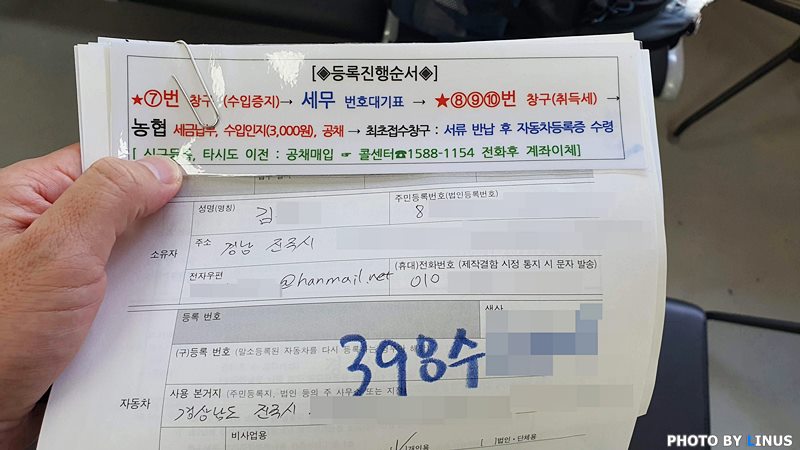 [◈등록진행순서◈]
★⑦번 창구 (수입증지)→ 세무 번호대기표 → ★⑧⑨⑩번 창구(취득세) →
농협 세금납부, 수입인지(3,000원), 공채 → 최초접수창구 : 서류 반납 후 자동차등록증 수령
[ 신규등록, 타시도 이전 : 공채매입 ☞ 콜센터☎1588-1154 전화후 계좌이체]
성명(명칭) 김
주민등록번호(법인등록번호) 8
소유자
주소 경남 진주시
전자우편 @hanmail.net
(휴대)전화번호 (제작결함 시정 통지 시 문자 발송) 010
등록 번호
색상
(구)등록 번호 (말소등록된 자동차를 다시
39
자동차
사용 본거지 (주민등록지, 법인 등의 주 사무소 또는
경상남도 진주시.
비사업용
[√]개인용 [ ]법인·단체용
PHOTO BY LINUS